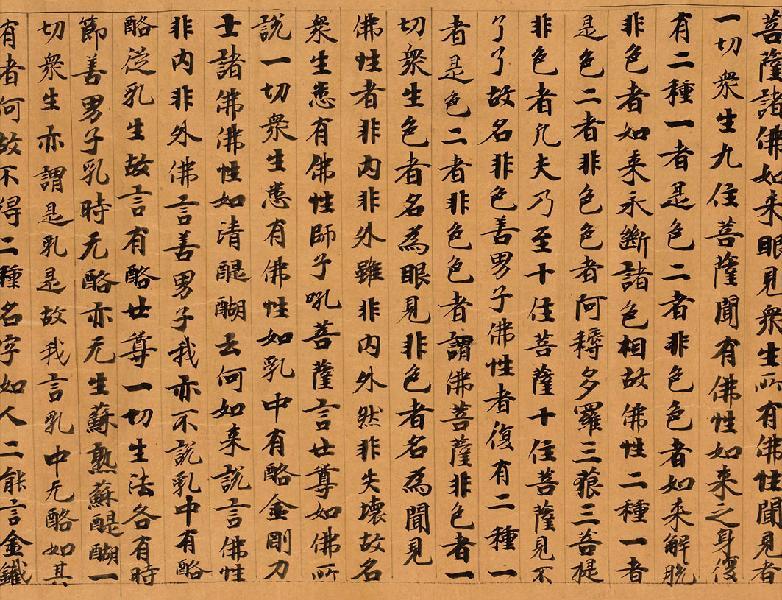 菩薩諸佛如来眼見衆生所有佛性聞見者
一切衆生九住菩薩聞有佛性如来之身復
有二種一者是色二者非色色者如来解脱
非色者如来永斷諸色相故佛性二種一者
是色二者非色色者阿耨多羅三藐三菩提
非色者凡夫乃至十住菩薩十住菩薩見不
了了故名非色善男子佛性者復有二種一
者是色二者非色色者謂佛菩薩非色者一
切衆生色者名為眼見非色者名為聞見
佛性者非内非外雖非内外然非失壞故名
衆生悉有佛性師子吼菩薩言世尊如佛所
説一切衆生悉有佛性如乳中有酪金剛力
士諸佛佛性如清醍醐云何如来説言佛性
非内非外佛言善男子我亦不説乳中有酪
酪従乳生故言有酪世尊一切生法各有時
節善男子乳時无酪亦无生蘇熟蘇醍醐一
切衆生亦謂是乳是故我言乳中无酪如其
有者何故不得二種名字如人二能言金鐵